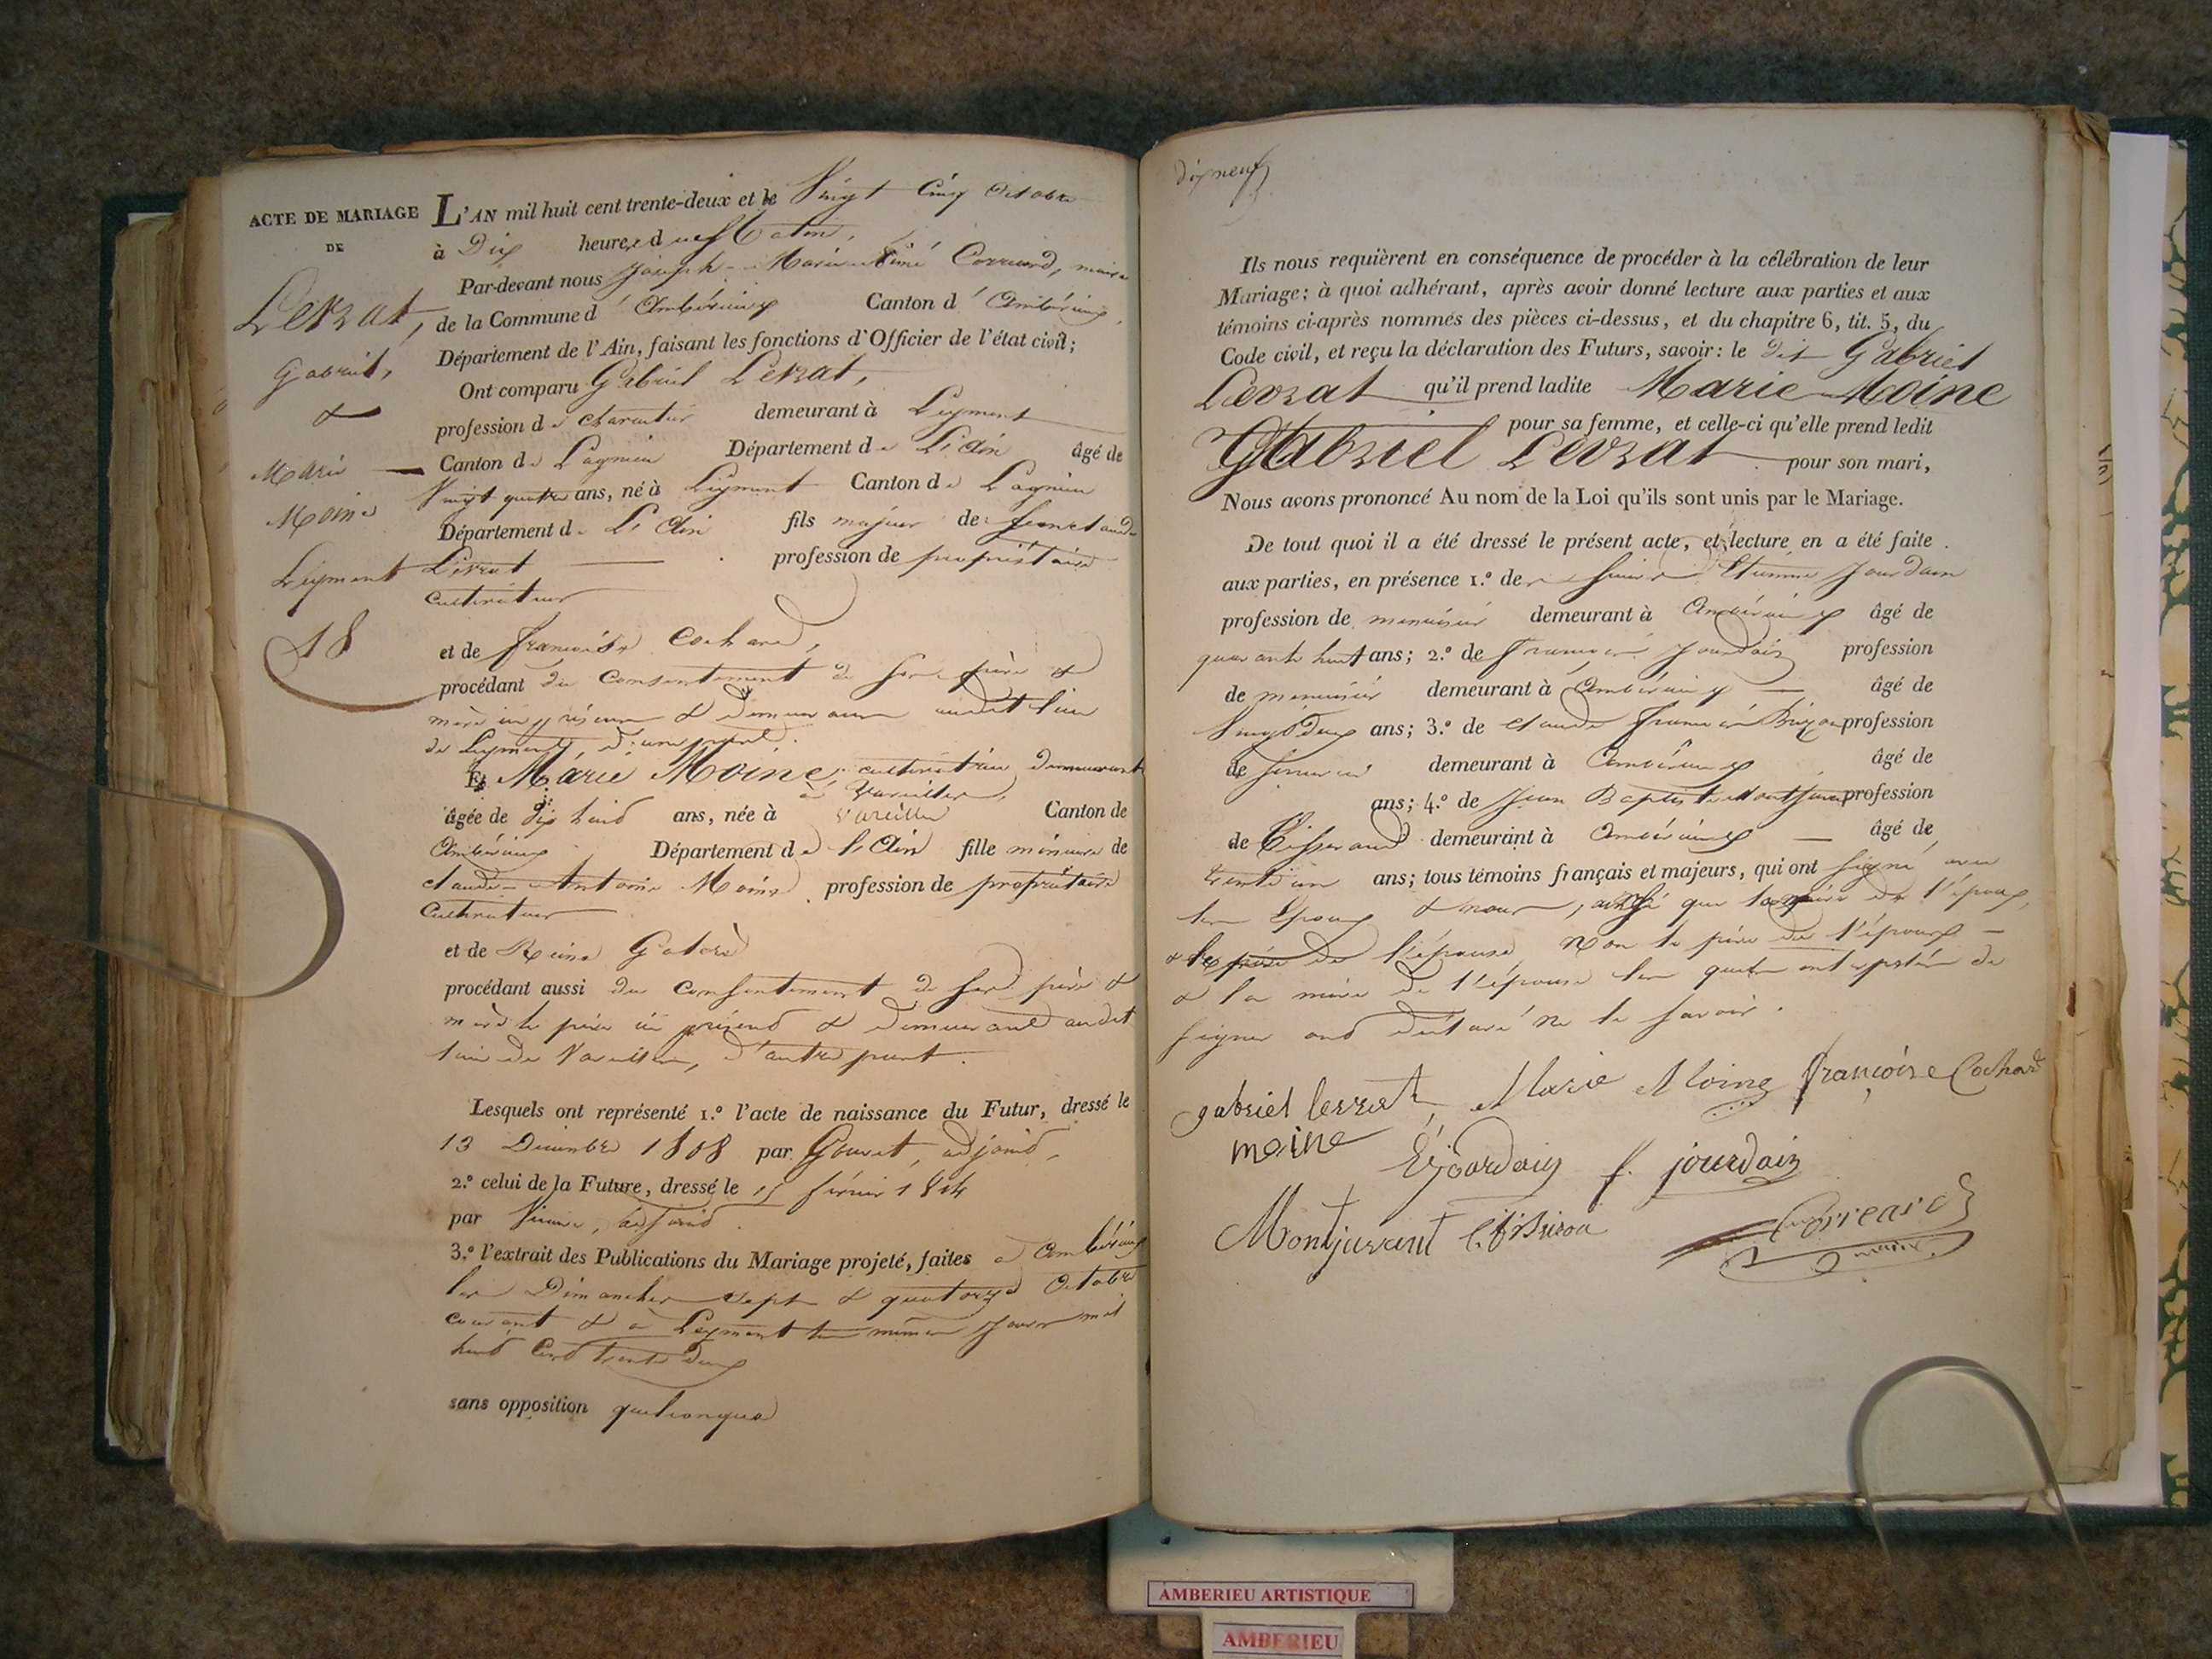 ACTE DE MARIAGE
DE
Levrat,
Gabriel,
&
Marie
Moine
Leyment
18
L'AN mil huit cent trente-deux et le Vingt Cinq Octobre
à Dix heures du Matin,
Par-devant nous Joseph-Marie-Aimé Corréard, maire
de la Commune d'Ambérieux Canton d'Ambérieux,
Département de l'Ain, faisant les fonctions d'Officier de l'état civil;
Ont comparu Gabriel Levrat,
profession de demeurant à Leyment
Canton de Lagnieu Département de L'Ain âgé de
Vingt quatre ans, né à Leyment Canton de Lagnieu
Département de L'Ain fils majeur de
Levrat profession de propriétaire
Cultivateur
et de françoise Cochard,
procédant du Consentement de ses père &
mère ici présens & demeurans audit lieu
de Leyment, d'une part.
Et Marie Moine, cultivatrice demeurant
à Vareilles,
âgée de dix huit ans, née à Vareilles Canton de
Ambérieux Département de l'Ain fille mineure de
Claude-Antoine Moine profession de propriétaire
Cultivateur
et de Reine
procédant aussi du Consentement de ses père &
mère ici présens & demeurant audit
lieu de Vareilles, d'autre part.
Lesquels ont représenté 1.º l'acte de naissance du Futur, dressé le
13 Décembre 1808 par adjoint,
2.º celui de la Future, dressé le 15 février 1814
par adjoint.
3.º l'extrait des Publications du Mariage projeté, faites à Ambérieux
les Dimanches sept & quatorze Octobre
courant & à Leyment les mêmes jours mil
huit Cent trente deux
sans opposition quelconque
dix neuf
Ils nous requièrent en conséquence de procéder à la célébration de leur
Mariage; à quoi adhérant, après avoir donné lecture aux parties et aux
témoins ci-après nommés des pièces ci-dessus, et du chapitre 6, tit. 5, du
Code civil, et reçu la déclaration des Futurs, savoir: le dit Gabriel
Levrat qu'il prend ladite Marie Moine
pour sa femme, et celle-ci qu'elle prend ledit
Gabriel Levrat pour son mari,
Nous avons prononcé Au nom de la Loi qu'ils sont unis par le Mariage.
De tout quoi il a été dressé le présent acte, et lecture en a été faite
aux parties, en présence 1.º de Etienne Jourdain
profession de menuisier demeurant à Ambérieux âgé de
quarante huit ans; 2.º de François Jourdain profession
de menuisier demeurant à Ambérieux âgé de
Vingt Deux ans; 3.º de Claude François profession
de demeurant à Ambérieux âgé de
ans; 4.º de Jean Baptiste Montjuvant profession
de Tisserand demeurant à Ambérieux âgé de
trente un ans; tous témoins français et majeurs, qui ont signé avec
les Epoux & nous, ainsi que la mère de l'époux,
& le père de l'épouse, non le père de l'époux
& la mère de l'épouse de
signer ont déclaré ne le savoir.
gabriel levrat Marie Moine françoise Cochard
moine E. jourdain f. jourdain
Montjuvant Corréard
maire
AMBERIEU ARTISTIQUE
AMBERIEU